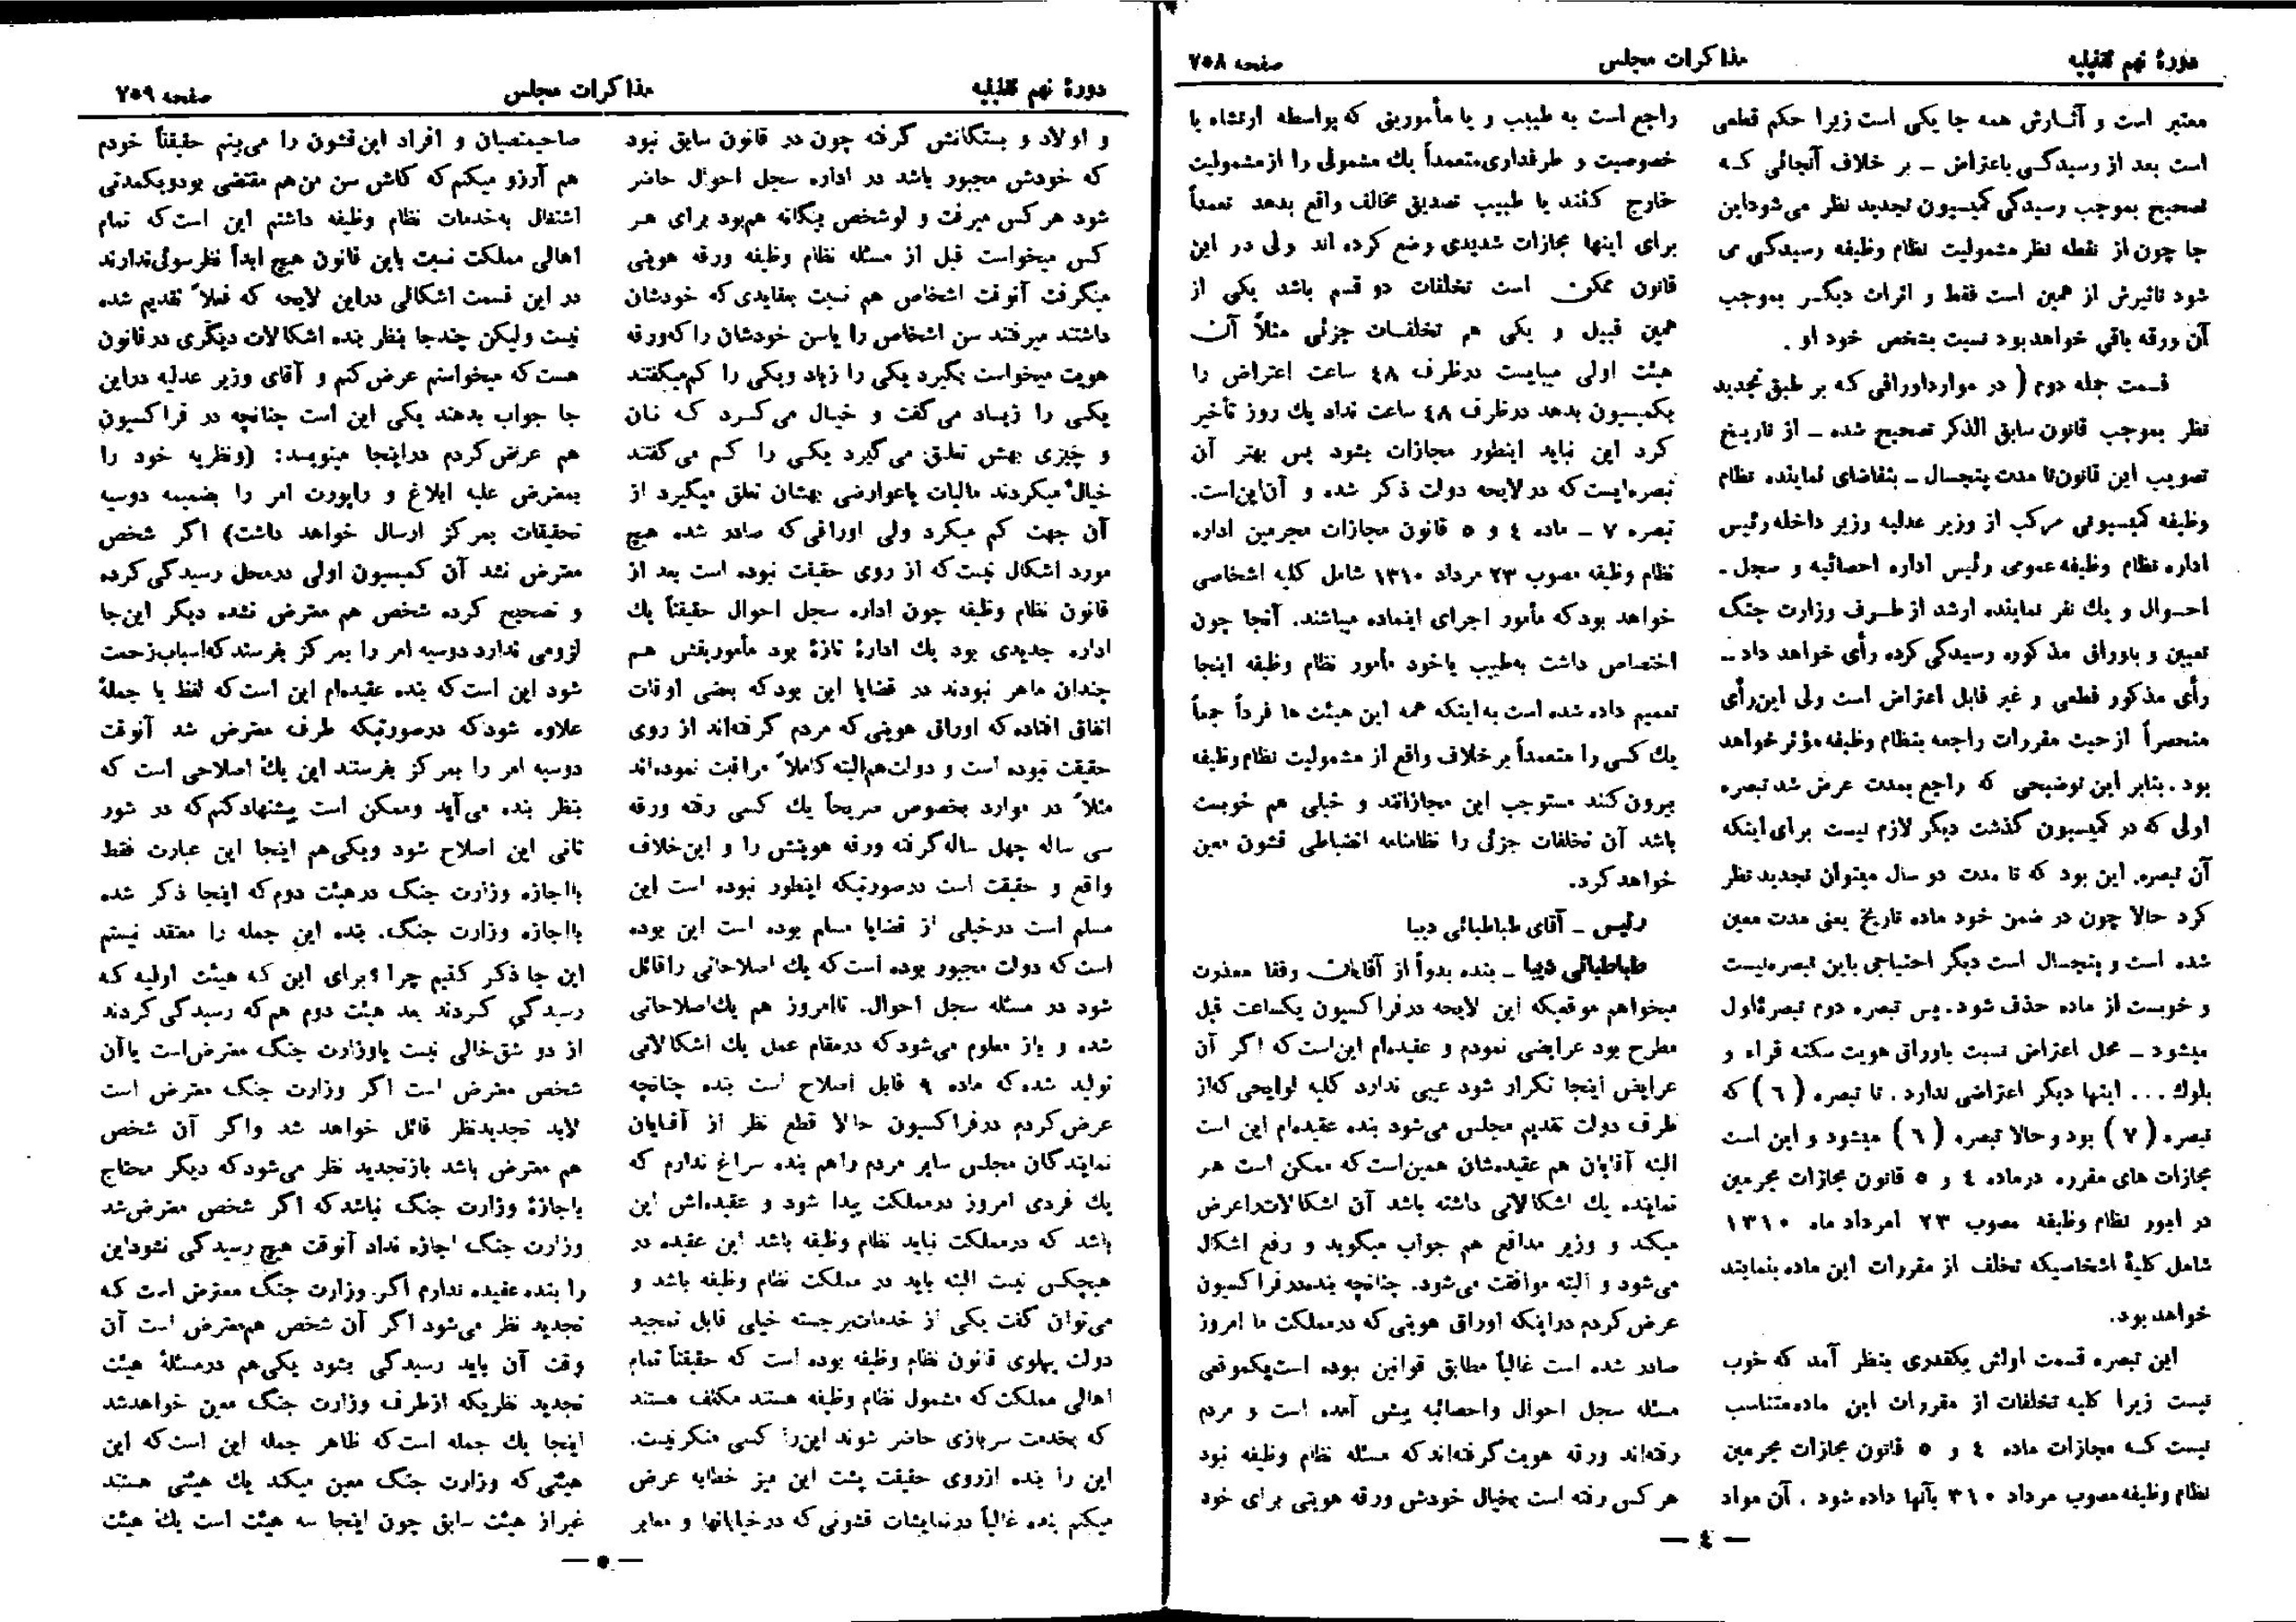 دورهٔ نهم تقنینیه
مذاکرات مجلس
صفحه ۷۵۸
معتبر است و آثارش همه جا یکی است زیرا حکم قطعی
است بعد از رسیدگی باعتراض ـ بر خلاف آنجائی که
تصحیح بموجب رسیدگی کمیسیون تجدید نظر می‌شود این
جا چون از نقطه نظر مشمولیت نظام وظیفه رسیدگی می
شود تاثیرش از همین است فقط و اثرات دیگر بموجب
آن ورقه باقی خواهد بود نسبت بشخص خود او .
قسمت جمله دوم ( در موارد اوراقی که بر طبق تجدید
نظر بموجب قانون سابق الذکر تصحیح شده ـ از تاریخ
تصویب این قانون تا مدت پنجسال ـ بتقاضای نماینده نظام
وظیفه کمیسیونی مرکب از وزیر عدلیه وزیر داخله رئیس
اداره نظام وظیفه عمومی رئیس اداره احصائیه و سجل ـ
احوال و یك نفر نماینده ارشد از طرف وزارت جنگ
تعیین و باوراق مذکوره رسیدگی کرده رأی خواهد داد ـ
رأی مذکور قطعی و غیر قابل اعتراض است ولی این رأی
منحصراً از حیث مقررات راجعه بنظام وظیفه مؤثر خواهد
بود . بنابر این توضیحی که راجع بمدت عرض شد تبصره
اولی که در کمیسیون گذشت دیگر لازم نیست برای اینکه
آن تبصره. این بود که تا مدت دو سال میتوان تجدید نظر
کرد حالا چون در ضمن خود ماده تاریخ یعنی مدت معین
شده است و پنجسال است دیگر احتیاجی باین تبصره نیست
و خوبست از ماده حذف شود. پس تبصره دوم تبصرهٔ اول
میشود ـ محل اعتراض نسبت باوراق هویت سکنه قراء و
بلوك ... اینها دیگر اعتراضی ندارد . تا تبصره ( ٦ ) که
تبصره ( ۷ ) بود و حالا تبصره ( ٦ ) میشود و این است
مجازات های مقرره در ماده ٤ و ٥ قانون مجازات مجرمین
در امور نظام وظیفه مصوب ۲۳ امرداد ماه ۱۳۱۰
شامل کلیهٔ اشخاصیکه تخلف از مقررات این ماده بنمایند
خواهد بود.
این تبصره قسمت اولش یکقدری بنظر آمد که خوب
نیست زیرا کلیه تخلفات از مقررات این ماده متناسب
نیست که مجازات ماده ٤ و ٥ قانون مجازات مجرمین
نظام وظیفه مصوب مرداد ۳۱۰ بآنها داده شود . آن مواد
راجع است به طبیب و یا مأمورینی که بواسطه ارتشاء یا
خصوصیت و طرفداری متعمداً یك مشمولی را از مشمولیت
خارج کنند یا طبیب تصدیق مخالف واقع بدهد تعمداً
برای اینها مجازات شدیدی وضع کرده اند ولی در این
قانون ممکن است تخلفات دو قسم باشد یکی از
همین قبیل و یکی هم تخلفات جزئی مثلاً آن
هیئت اولی میبایست در ظرف ٤۸ ساعت اعتراض را
بکمیسیون بدهد در ظرف ٤۸ ساعت نداد یك روز تأخیر
کرد این نباید اینطور مجازات بشود پس بهتر آن
تبصره‌ایست که در لایحه دولت ذکر شده و آن این است.
تبصره ۷ ـ ماده ٤ و ٥ قانون مجازات مجرمین اداره
نظام وظیفه مصوب ۲۳ مرداد ۱۳۱۰ شامل کلیه اشخاصی
خواهد بود که مأمور اجرای اینماده میباشند. آنجا چون
اختصاص داشت به طبیب یا خود مأمور نظام وظیفه اینجا
تعمیم داده شده است به اینکه همه این هیئت ها فرداً جمعاً
یك کسی را متعمداً بر خلاف واقع از مشمولیت نظام وظیفه
بیرون کند مستوجب این مجازاتند و خیلی هم خوبست
باشد آن تخلفات جزئی را نظامنامه انضباطی قشون معین
خواهد کرد.
رئیس ـ آقای طباطبائی دیبا
طباطبائی دیبا ـ بنده بدواً از آقایان رفقا معذرت
میخواهم موقعیکه این لایحه در فراکسیون یکساعت قبل
مطرح بود عرایضی نمودم و عقیده‌ام این است که اگر آن
عرایض اینجا تکرار شود عیبی ندارد کلیه لوایحی که از
طرف دولت تقدیم مجلس می‌شود بنده عقیده‌ام این است
البته آقایان هم عقیده‌شان همین است که ممکن است هر
نماینده یك اشکالاتی داشته باشد آن اشکالات را عرض
میکند و وزیر مدافع هم جواب میگوید و رفع اشکال
می‌شود و البته موافقت می‌شود. چنانچه بنده در فراکسیون
عرض کردم در اینکه اوراق هویتی که در مملکت ما امروز
صادر شده است غالباً مطابق قوانین نبوده است یکموقعی
مسئله سجل احوال و احصائیه پیش آمده است و مردم
رفته‌اند ورقه هویت گرفته‌اند که مسئله نظام وظیفه نبود
هر کس رفته است بخیال خودش ورقه هویتی برای خود
— ٤ —
دورهٔ نهم تقنینیه
مذاکرات مجلس
صفحه ۷۵۹
و اولاد و بستگانش گرفته چون در قانون سابق نبود
که خودش مجبور باشد در اداره سجل احوال حاضر
شود هر کس میرفت و لو شخص بیگانه هم بود برای هر
کس میخواست قبل از مسئله نظام وظیفه ورقه هویتی
میگرفت آنوقت اشخاص هم نسبت بعقایدی که خودشان
داشتند میرفتند سن اشخاص را یا سن خودشان را که ورقه
هویت میخواست بگیرد یکی را زیاد و یکی را کم میگفتند
یکی را زیاد می‌گفت و خیال می‌کرد که نان
و چیزی بهش تعلق می‌گیرد یکی را کم می‌گفتند
خیال میکردند مالیات یا عوارضی بهشان تعلق میگیرد از
آن جهت کم میکرد ولی اوراقی که صادر شده هیچ
مورد اشکال نیست که از روی حقیقت نبوده است بعد از
قانون نظام وظیفه چون اداره سجل احوال حقیقتاً یك
اداره جدیدی بود یك ادارهٔ تازهٔ بود مأمورینش هم
چندان ماهر نبودند در قضایا این بود که بعضی اوقات
اتفاق افتاده که اوراق هویتی که مردم گرفته‌اند از روی
حقیقت نبوده است و دولت هم البته کاملاً مراقبت نموده‌اند
مثلاً در موارد بخصوص صریحاً یك کسی رفته ورقه
سی ساله چهل ساله گرفته ورقه هویتش را و این خلاف
واقع و حقیقت است در صورتیکه اینطور نبوده است این
مسلم است در خیلی از قضایا مسلم بوده است این بوده
است که دولت مجبور بوده است که یك اصلاحاتی را قائل
شود در مسئله سجل احوال. تا امروز هم یك اصلاحاتی
شده و باز معلوم می‌شود که در مقام عمل یك اشکالاتی
تولید شده که ماده ۹ قابل اصلاح است بنده چنانچه
عرض کردم در فراکسیون حالا قطع نظر از آقایان
نمایندگان مجلس سایر مردم را هم بنده سراغ ندارم که
یك فردی امروز در مملکت پیدا شود و عقیده‌اش این
باشد که در مملکت نباید نظام وظیفه باشد این عقیده در
هیچکس نیست البته باید در مملکت نظام وظیفه باشد و
می‌توان گفت یکی از خدمات برجسته خیلی قابل تمجید
دولت پهلوی قانون نظام وظیفه بوده است که حقیقتاً تمام
اهالی مملکت که مشمول نظام وظیفه هستند مکلف هستند
که بخدمت سربازی حاضر شوند این را کسی منکر نیست.
این را بنده از روی حقیقت پشت این میز خطابه عرض
میکنم بنده غالباً در نمایشات قشونی که در خیابانها و معابر
صاحبمنصبان و افراد این قشون را می‌بینم حقیقتاً خودم
هم آرزو میکنم که کاش سن من هم مقتضی بود و یکمدتی
اشتغال به خدمات نظام وظیفه داشتم این است که تمام
اهالی مملکت نسبت باین قانون هیچ ابداً نظر سوئی ندارند
در این قسمت اشکالی در این لایحه که فعلاً تقدیم شده
نیست ولیکن چند جا بنظر بنده اشکالات دیگری در قانون
هست که میخواستم عرض کنم و آقای وزیر عدلیه در این
جا جواب بدهند یکی این است چنانچه در فراکسیون
هم عرض کردم در اینجا مینویسد: (و نظریه خود را
بمعترض علیه ابلاغ و راپورت امر را بضمیمه دوسیه
تحقیقات بمرکز ارسال خواهد داشت) اگر شخص
معترض نشد آن کمیسیون اولی در محل رسیدگی کرده
و تصحیح کرده شخص هم معترض نشده دیگر این جا
لزومی ندارد دوسیه امر را بمرکز بفرستد که اسباب زحمت
شود این است که بنده عقیده‌ام این است که لفظ یا جملهٔ
علاوه شود که در صورتیکه طرف معترض شد آنوقت
دوسیه امر را بمرکز بفرستند این یك اصلاحی است که
بنظر بنده می‌آید و ممکن است پیشنهاد کنم که در شور
ثانی این اصلاح شود و یکی هم اینجا این عبارت فقط
با اجازه وزارت جنگ در هیئت دوم که اینجا ذکر شده
با اجازه وزارت جنگ. بنده این جمله را معتقد نیستم
این جا ذکر کنیم چرا ؟ برای این که هیئت اولیه که
رسیدگی کردند بعد هیئت دوم هم که رسیدگی کردند
از دو شق خالی نیست یا وزارت جنگ معترض است یا آن
شخص معترض است اگر وزارت جنگ معترض است
لابد تجدید نظر قائل خواهد شد و اگر آن شخص
هم معترض باشد باز تجدید نظر می‌شود که دیگر محتاج
باجازهٔ وزارت جنگ نباشد که اگر شخص معترض شد
وزارت جنگ اجازه نداد آنوقت هیچ رسیدگی نشود این
را بنده عقیده ندارم اگر وزارت جنگ معترض است که
تجدید نظر می‌شود اگر آن شخص هم معترض است آن
وقت آن باید رسیدگی بشود یکی هم در مسئلهٔ هیئت
تجدید نظریکه از طرف وزارت جنگ معین خواهد شد
اینجا یك جمله است که ظاهر جمله این است که این
هیئتی که وزارت جنگ معین میکند یك هیئتی هستند
غیر از هیئت سابق چون اینجا سه هیئت است یك هیئت
— ٥ —